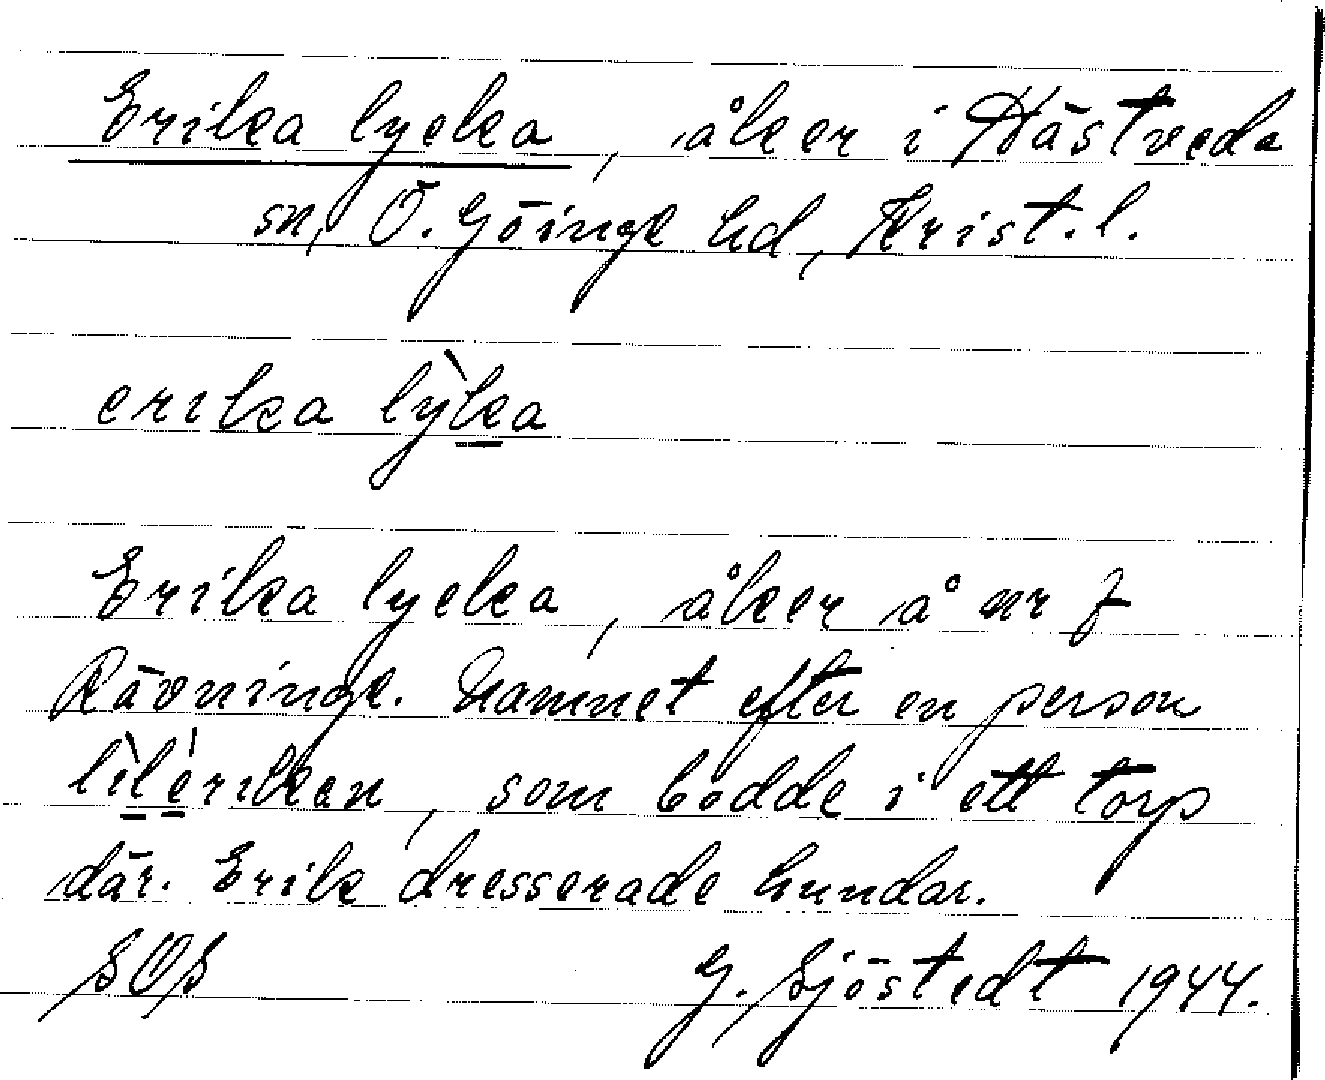 Erika lycka, åker i Hästveda
sn, Ö. Göinge hd, Krist. l.
erika lỳka
Erika lycka, åker å nr 7
Rävninge. Namnet efter en person
lìlériken, som bodde i ett torp
där. Erik dresserade hundar.
SOS G. Sjöstedt 1944.